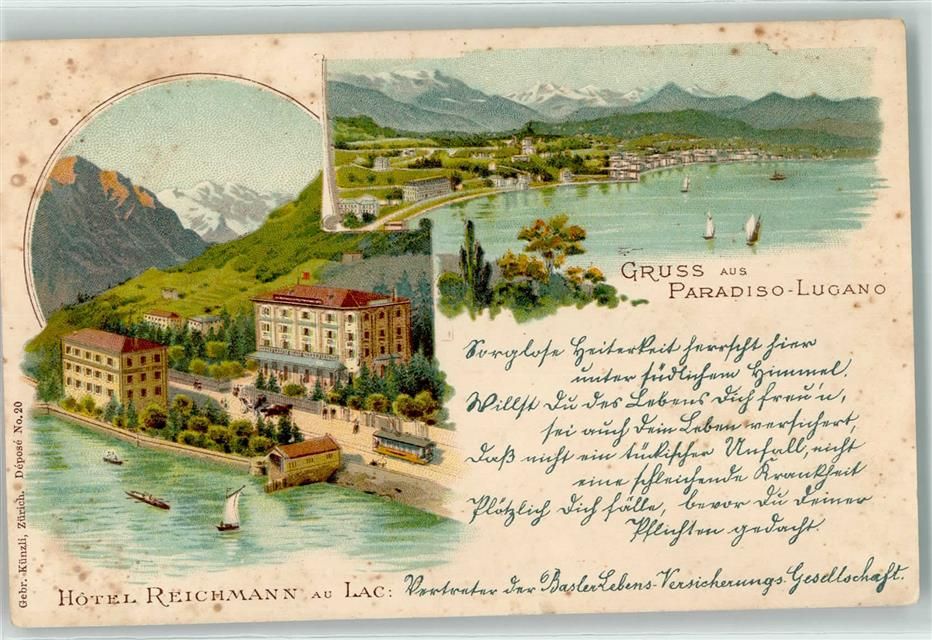 GRUSS AUS
PARADISO-LUGANO
Sorglose Heiterkeit herrscht hier
unter südlichem Himmel.
Willst Du des Lebens Dich freu'n,
sei auch Dein Leben versichert,
Daß nicht ein tückischer Unfall, nicht
eine schleichende Krankheit
Plötzlich Dich fälle, bevor Du Deiner
Pflichten gedacht.
HÔTEL REICHMANN AU LAC: Vertreter der Basler Lebens-Versicherungs-Gesellschaft.
Gebr. Künzli, Zürich. Déposé No. 20